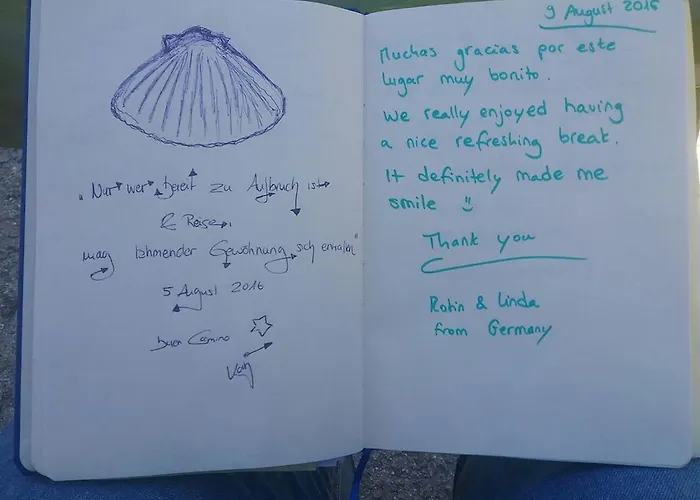 „Nur wer bereit zu Aufbruch ist
& Reise,
mag lähmender Gewöhnung sich entraffen"
5 August 2016
buen Camino
9 August 2016
Muchas gracias por este
lugar muy bonito.
We really enjoyed having
a nice refreshing break.
It definitely made me
smile
Thank you
Robin & Linda
from Germany